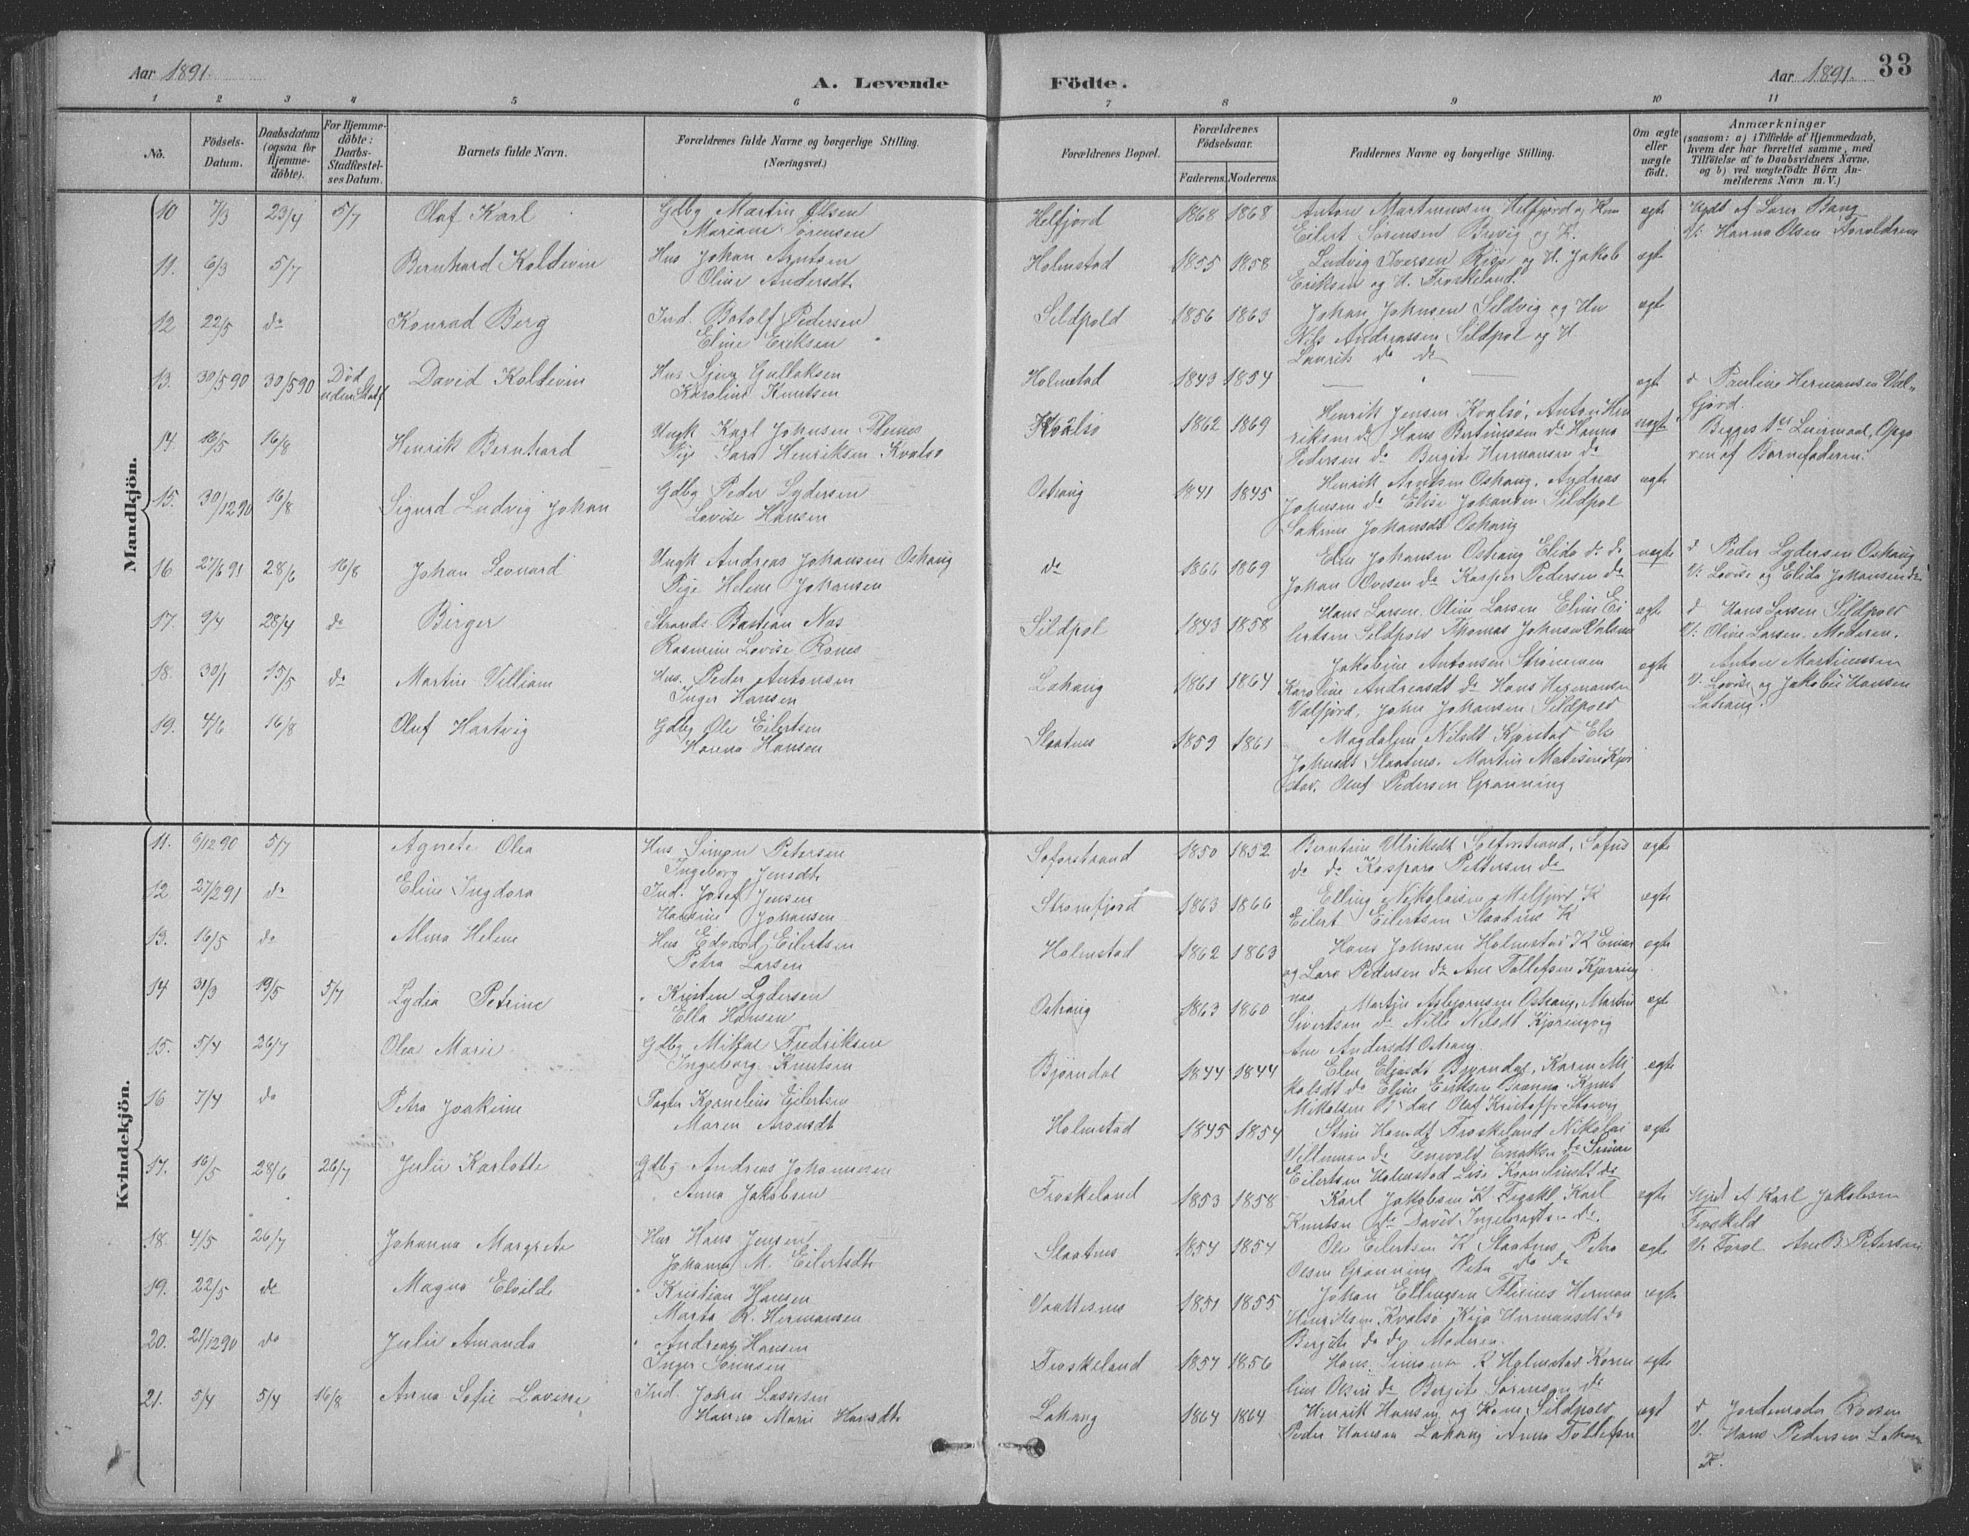 Aar 1891.
A. Levende Födte.
Aar 1891. 33
1 2 3 4 5 6 7 8 9 10 11
No.
Födsels-Datum.
Daabsdatum (ogsaa for Hjemmedöbte).
For Hjemmedöbte: Daabs-Stadfæstelses Datum.
Barnets fulde Navn.
Forældrenes fulde Navne og borgerlige Stilling. (Næringsvei.)
Forældrenes Bopæl.
Forældrenes Födselsaar.
Faderens. Moderens.
Faddernes Navne og borgerlige Stilling.
Om ægte eller uægte födt.
Anmærkninger
(saasom: a) i Tilfælde af Hjemmedaab, hvem der har forrettet samme, med Tilföielse af to Daabsvidners Navne, og b) ved uægtefödte Börn Anmelderens Navn m. V.)
Mandkjön.
10 7/3 23/4 5/7 Olaf Karl Gdbg Martin Olsen Helfjord 1868 1868 Anton Martinussen Helfjord og Kone ægte Hjdt af Lærer Bang
Mariane Sørensen Eilert Sørensen Brevig og K. V: Hanna Olsen Forældrene
11. 6/3 5/7 Bernhard Koldevin Hus Johan Arntsen Holmstad 1855 1858 Ludvig Iversen og H. Jakob ægte
Oline Andersdt. Eriksen og H. Froskeland.
12 22/5 do Konrad Berg Ind. Botolf Pedersen Sildpold 1856 1863 Johan Johnsen Sildvig og Hu ægte
Eline Eriksen Nils Andreassen Sildpol og H.
Laurik do do
13. 30/5 90 30/5 90 Død uden Stadf David Koldevin Hus Gullaksen Holmstad 1843 1854 ægte d Pauline Hermansen Val-
Karoline Knutsen fjord.
14. 16/5 16/8 Henrik Bernhard Ungk Karl Johnsen Kvalsø 1862 1869 Henrik Jensen Kvalsø, Anton Hen uægte Begges 1ste Leiermaal, Opgi
Pige Sara Henriksen Kvalsø riksen do Hans Bertinussen do Hanna ven af Barnefaderen.
Pedersen do Bergite Hermansen do
15. 30/12 90 16/8 Sigurd Ludvig Johan Gdbg Peder Lydersen Oshaug 1841 1845 Henrik Arntsen Oshaug, Andreas ægte
Lovise Hansen Johnsen do Elise Johansen Sildpol
Johansdt Oshaug
16 27/6 91 28/6 16/8 Johan Leonard Ungk Andreas Johansen Oshaug do 1866 1869 Johansen Oshaug Elida do do uægte d Peder Lydersen Oshaug
Pige Helene Johansen Johan Ovesen do Kasper Pedersen do V: Lovise og Elida Johansen do
17. 9/4 28/4 do Birger Strands Bastian Nos Sildpol 1843 1858 Hans Larsen. Oline Larsen Eline Ei ægte d Hans Larsen Sildpold
Rasmine Lovise lertsen Sildpold Thomas Johnsen V: Oline Larsen. Moderen.
18. 30/1 15/5 do Martin Villiam Hus. Peder Antonsen Lahaug 1861 1864 Jakobine Antonsen ægte Anton Martinussen
Inger Hansen Karoline Andreasdt do Hans Hermansen V: Lovise og Jakobie Hansen
Valfjord. John Johansen Sildpold Lahaug.
19. 4/6 16/8 Oluf Hartvig Gdbg Ole Eilertsen Slaatnes 1859 1861 Magdalene Nilsdt Else
Hansen Johnsdt Slaatnes. Martin
Oluf Pedersen Grønning
Kvindekjön.
11. 6/12 90 5/7 Agnete Olea Hus. Simon Petersen 1850 1852 Berntine Ulriksdt ægte
Ingeborg Jensdt. do do Kaspara Pettersen do
12 27/2 91 do Eline Ingdora Ind. Josef Jensen Strømfjord 1863 1866 Elling Nikolaisen Melfjord K ægte
Hansine Johansen Eilert Eilertsen Slaatnes K
13. 16/5 do Alma Helene Hus Edvard Eilertsen Holmstad 1862 1863 Hans Johnsen Holmstad K Einar ægte
Petra Larsen og Lars Pedersen do Ane Tollefsen Kjørring
14 31/3 19/5 5/7 Lydia Petrine " Kristen Lydersen Oshaug 1863 1860 nes Martin Asbjørnsen Oshaug, Martin ægte
Ella Hansen Sivertsen do Nille Nilsdt Kjøringvig
Ane Andersdt Oshaug.
15. 5/4 26/7 Olea Marie Gdbg Mikal Fredriksen Bjørndal 1844 1844 Elen Eliasdt Bjørndal, Karen Mi ægte
Ingeborg Knutsen kalsdt do Eline Eriksen Knut
Mikalsen Olaf Kristoffr
16 7/4 do Petra Joakime Kornelius Eilertsen Holmstad 1845 1854 Stine Hansdt Froskeland Nikolai ægte
Maren Aronsdt
Eilertsen Holmstad Lise Korneliusdt do
17. 16/5 28/6 26/7 Julie Karlotte Gdbg Andreas Johannesen Froskeland 1853 1858 Karl Jakobsen K Karl ægte Hjd A Karl Jakobsen
Anna Jakobsen Knutsn do David Ingebrigtsen do. Froskeld
18. 4/5 26/7 Johanna Margrete Hus Hans Jensen Slaatnes 1854 1854 Ole Eilertsen K Slaatnes, Petra ægte V: Foræl Ane B Petersen
Johanna M. Eilertsdt. Olsen Grønning Peta do do
19. 22/5 do Magna Elvilde " Kristian Hansen 1851 1855. Johan Ellingsen Herman ægte
Marta R. Hermansen Henriksen Kvalsø Hermansdt do
20. 21/12 90 do Julie Amanda " Andreas Hansen Froskeland 1857 1856 Bergite do do Moderen.
Inger Sørensen Hans Simonsen K Holmstad Korne ægte
21. 5/4 5/4 16/8 Anna Sofie Lavine Ind. John Lassesen Lahaug 1864 1864 lius Olsen do Bergite Sørensen do
Hanna Marie Hansdt. Henrik Hansen og Kone Sildpold ægt d Jordemoder
Peder Hansen Lahaug Anna Tollefsen V: Hans Pedersen